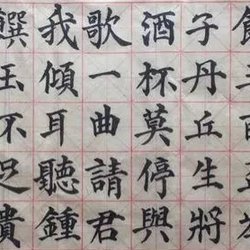 子丹丘生將
酒杯莫停與
歌一曲請君
我傾耳聽鍾
饌玉不足貴